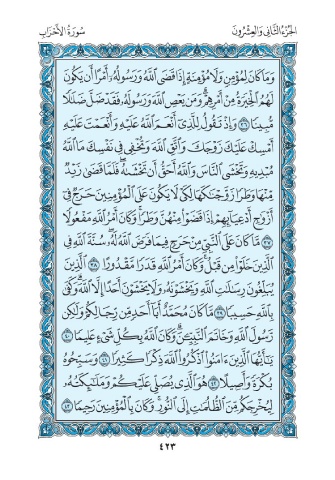 الجزء الثاني والعشرون
سورة الأحزاب
وَمَا كَانَ لِمُؤْمِنٍ وَلَا مُؤْمِنَةٍ إِذَا قَضَى ٱللَّهُ وَرَسُولُهُۥٓ أَمْرًا أَن يَكُونَ
لَهُمُ ٱلْخِيَرَةُ مِنْ أَمْرِهِمْۗ وَمَن يَعْصِ ٱللَّهَ وَرَسُولَهُۥ فَقَدْ ضَلَّ ضَلَٰلًا
مُّبِينًا ٣٦ وَإِذْ تَقُولُ لِلَّذِىٓ أَنْعَمَ ٱللَّهُ عَلَيْهِ وَأَنْعَمْتَ عَلَيْهِ
أَمْسِكْ عَلَيْكَ زَوْجَكَ وَٱتَّقِ ٱللَّهَ وَتُخْفِى فِى نَفْسِكَ مَا ٱللَّهُ
مُبْدِيهِ وَتَخْشَى ٱلنَّاسَ وَٱللَّهُ أَحَقُّ أَن تَخْشَىٰهُۖ فَلَمَّا قَضَىٰ زَيْدٌ
مِّنْهَا وَطَرًا زَوَّجْنَٰكَهَا لِكَىْ لَا يَكُونَ عَلَى ٱلْمُؤْمِنِينَ حَرَجٌ فِىٓ
أَزْوَٰجِ أَدْعِيَآئِهِمْ إِذَا قَضَوْا۟ مِنْهُنَّ وَطَرًاۚ وَكَانَ أَمْرُ ٱللَّهِ مَفْعُولًا
٣٧ مَّا كَانَ عَلَى ٱلنَّبِىِّ مِنْ حَرَجٍ فِيمَا فَرَضَ ٱللَّهُ لَهُۥۖ سُنَّةَ ٱللَّهِ فِى
ٱلَّذِينَ خَلَوْا۟ مِن قَبْلُۚ وَكَانَ أَمْرُ ٱللَّهِ قَدَرًا مَّقْدُورًا ٣٨ ٱلَّذِينَ
يُبَلِّغُونَ رِسَٰلَٰتِ ٱللَّهِ وَيَخْشَوْنَهُۥ وَلَا يَخْشَوْنَ أَحَدًا إِلَّا ٱللَّهَۗ وَكَفَىٰ
بِٱللَّهِ حَسِيبًا ٣٩ مَّا كَانَ مُحَمَّدٌ أَبَآ أَحَدٍ مِّن رِّجَالِكُمْ وَلَٰكِن
رَّسُولَ ٱللَّهِ وَخَاتَمَ ٱلنَّبِيِّۦنَۗ وَكَانَ ٱللَّهُ بِكُلِّ شَىْءٍ عَلِيمًا ٤٠
يَٰٓأَيُّهَا ٱلَّذِينَ ءَامَنُوا۟ ٱذْكُرُوا۟ ٱللَّهَ ذِكْرًا كَثِيرًا ٤١ وَسَبِّحُوهُ
بُكْرَةً وَأَصِيلًا ٤٢ هُوَ ٱلَّذِى يُصَلِّى عَلَيْكُمْ وَمَلَٰٓئِكَتُهُۥ
لِيُخْرِجَكُم مِّنَ ٱلظُّلُمَٰتِ إِلَى ٱلنُّورِۚ وَكَانَ بِٱلْمُؤْمِنِينَ رَحِيمًا ٤٣
٤٢٣